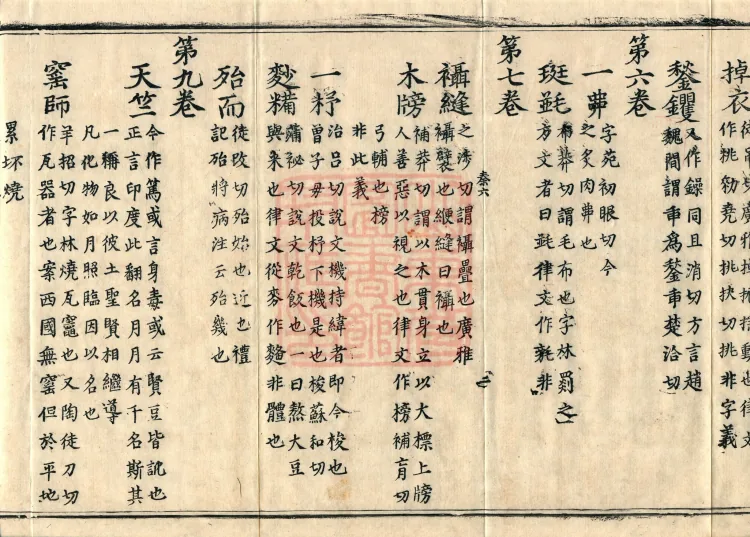 掉衣
作挑勑堯切挑抉也非字義
鍫钁又作鏁同且消切方言趙
魏間謂臿為鍫臿楚洽切
第六卷
一丳字苑初眼切今
之炙肉丳也
第七卷
斑毦
方文者曰毦律文作毦非
襵縫之涉切謂襵疊也廣雅
襵襞也緶縫曰襵也
叅六
木牓補莽切謂以木貫身立以大標上牓
人善惡以視之也律文作搒補肓切
弓輔也搒
非此義
一杼治呂切說文機持緯者即今梭也
曾子毋投杼下機是也梭蘇和切
麨糒蒲祕切說文乾飯也一曰熬大豆
與米也律文從麥作䴺非體也
殆而徒改切殆始也近也禮
記殆將病注云殆幾也
第九卷
天竺今作篤或言身毒或云賢豆皆訛也
正言印度此翻名月月有千名斯其
一稱良以彼土聖賢相繼導
凡化物如月照臨因以名也
窯師羊招切字林燒瓦竈也又陶徒刀切
作瓦器者也案西國無窯但於平地
累坏燒